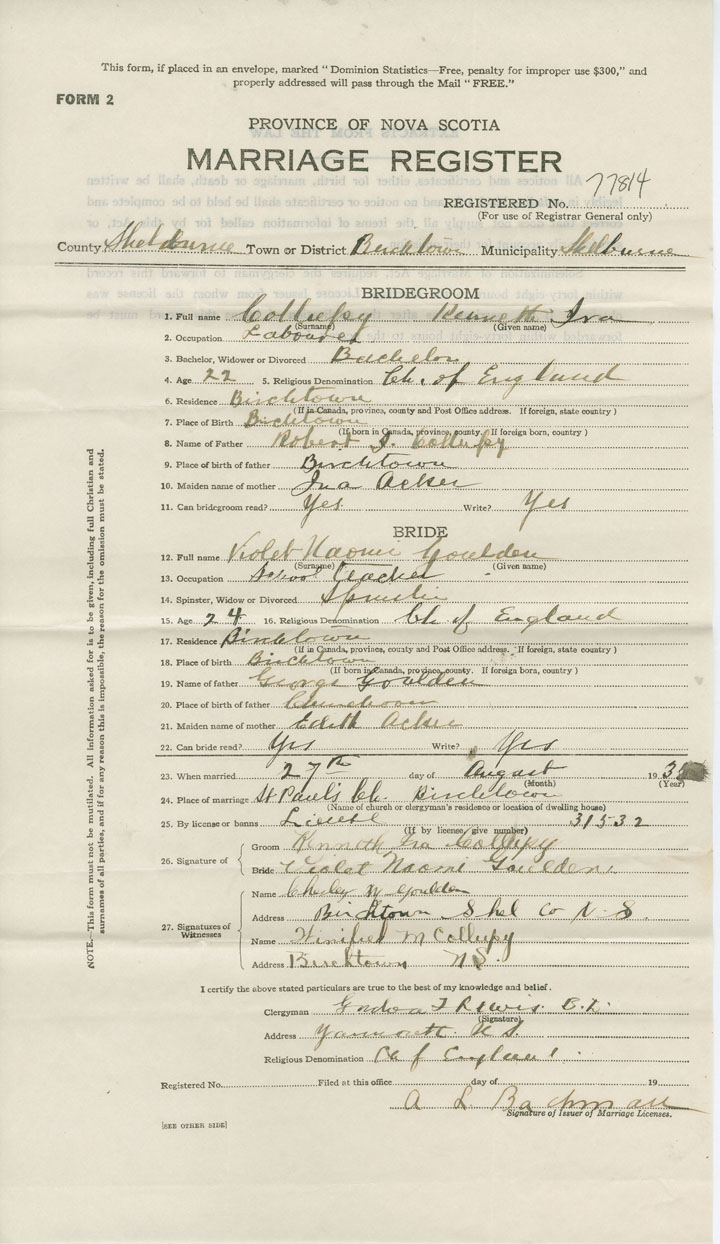 This form, if placed in an envelope, marked "Dominion Statistics—Free, penalty for improper use $300," and
properly addressed will pass through the Mail "FREE."
FORM 2
PROVINCE OF NOVA SCOTIA
MARRIAGE REGISTER
REGISTERED No. 77814
(For use of Registrar General only)
County Shelburne Town or District Birchtown Municipality Shelburne
BRIDEGROOM
1. Full name Collupy Kenneth Ira
(Surname) (Given name)
2. Occupation Labourer
3. Bachelor, Widower or Divorced Bachelor
4. Age 22 5. Religious Denomination Ch. of England
6. Residence Birchtown
(If in Canada, province, county and Post Office address. If foreign, state country)
7. Place of Birth Birchtown
(If born in Canada, province, county. If foreign born, country)
8. Name of Father Robert J. Collupy
9. Place of birth of father Birchtown
10. Maiden name of mother Ina Acker
11. Can bridegroom read? Yes Write? Yes
BRIDE
12. Full name Violet Naomi Goulden
(Surname) (Given name)
13. Occupation School Teacher
14. Spinster, Widow or Divorced Spinster
15. Age 24 16. Religious Denomination Ch of England
17. Residence Birchtown
(If in Canada, province, county and Post Office address. If foreign, state country)
18. Place of birth Birchtown
(If born in Canada, province, county. If foreign born, country)
19. Name of father George Goulden
20. Place of birth of father
21. Maiden name of mother Edith Acker
22. Can bride read? Yes Write? Yes
23. When married 27th day of August 193
(Month) (Year)
24. Place of marriage St Paul's Ch. Birchtown
(Name of church or clergyman's residence or location of dwelling house)
25. By license or banns License 31532
(If by license, give number)
26. Signature of
Groom Kenneth Ira Collupy
Bride Violet Naomi Goulden.
27. Signatures of Witnesses
Name Charley W Goulden
Address Birchtown Shel Co N.S.
Name Winifred M Collupy
Address Birchtown N.S.
I certify the above stated particulars are true to the best of my knowledge and belief.
Clergyman Gordon T Lewis
(Signature)
Address Yarmouth N.S.
Religious Denomination Ch of England
Registered No. Filed at this office day of 19
A L Bachman
Signature of Issuer of Marriage Licenses.
[SEE OTHER SIDE]
NOTE.—This form must not be mutilated. All information asked for is to be given, including full Christian and
surnames of all parties, and if for any reason this is impossible, the reason for the omission must be stated.